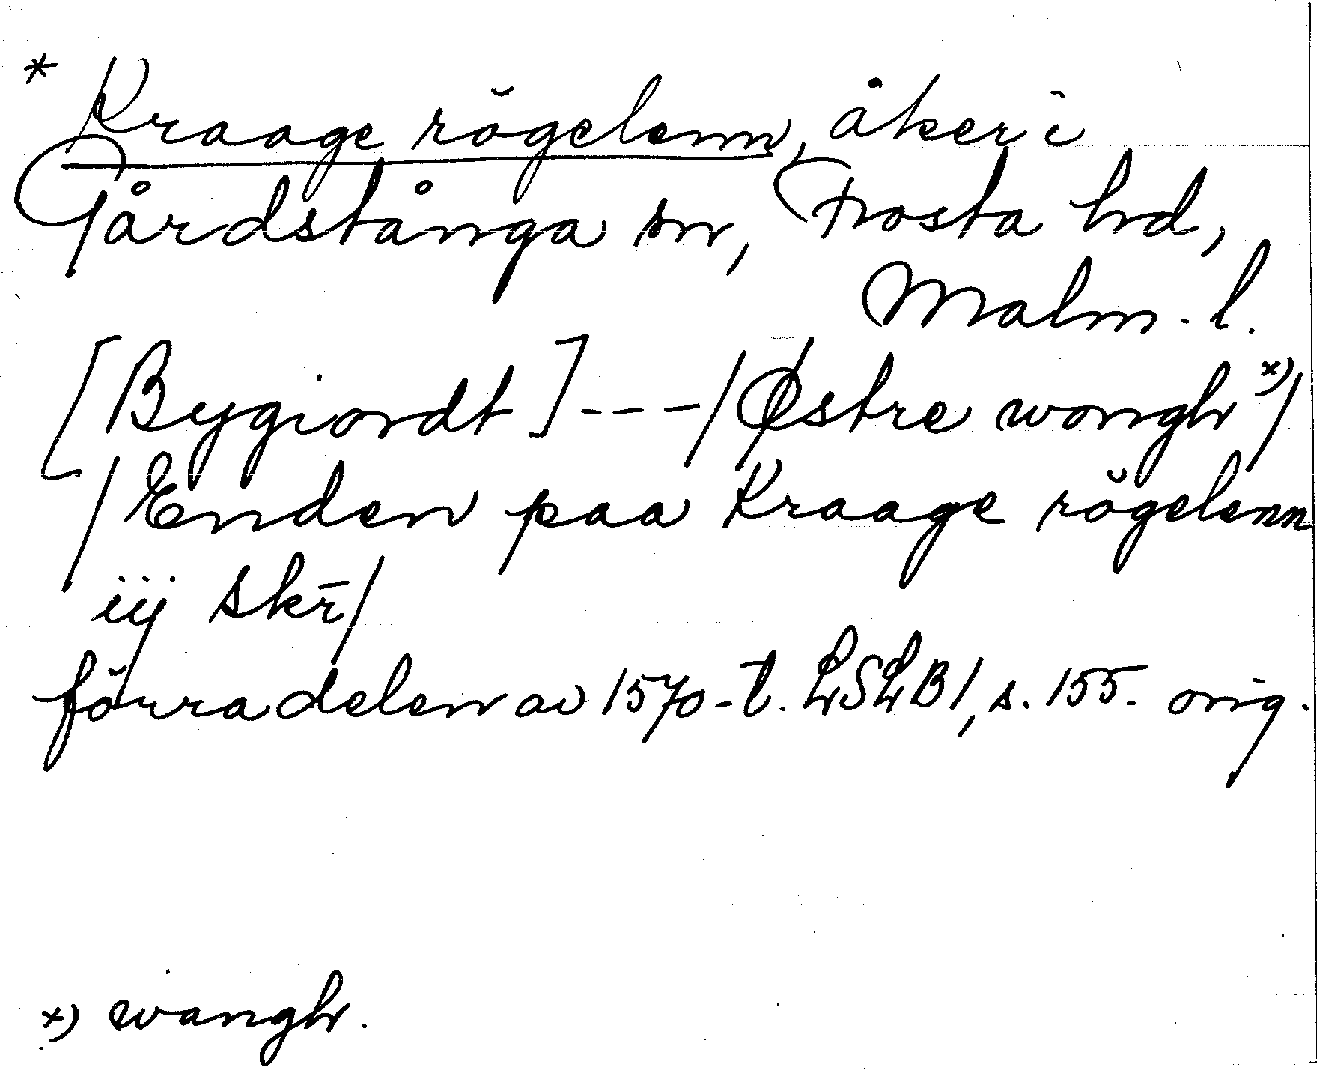 * Kraage rögelenn, åker i
Gårdstånga sn, Frosta hd,
Malm. l.
[Bygiordt] --- /Østre wongh x)/
/Enden paa Kraage rögelenn
iij skr̄/
förra delen av 1570-t. LSLB1, s. 155. orig.
x) wangh.